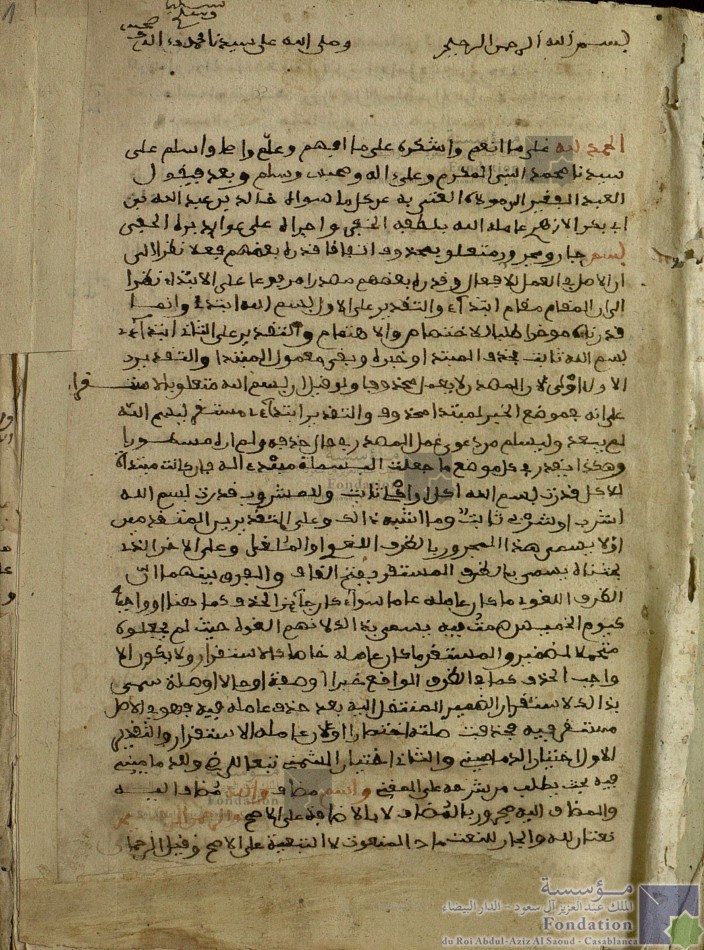 1
بسم الله الرحمن الرحيم وصلى الله على سيدنا محمد وءاله وصحبه
وسلم تسليما
الحمد لله على ما انعم واشكره على ما الهم وعلم واصلي واسلم على
سيدنا محمد النبي المكرم وعلى ءاله وصحبه وسلم وبعد فيقول
العبد الفقير الى مولاه الغني به عن كل ما سواه خالد بن عبد الله بن
ابي بكر الازهري عامله الله بلطفه الخفي واجراه على عوايد بره الحفي
بسم جار ومجرور متعلق بمحذوف اتفاقا قدره بعضهم فعلا نظرا الى
ان الاصل في العمل للافعال وقدره بعضهم مصدرا مرفوعا على الابتداء نظرا
الى ان المقام مقام ابتداء والتقدير على الاول بسم الله ابتدئ وانما
قدرناه موخرا طلبا للاختصاص والاهتمام والتقدير على الثاني ابتداءي
بسم الله ثابت فحذف المبتدا وخبره وبقي معمول المبتدا والتقدير
الاول اولى لان المصدر لا يعمل محذوفا ولو قيل ان بسم الله متعلق بالاستقرار
على انه في موضع الخبر لمبتدا محذوف والتقدير ابتداءي مستقر بسم الله
لم يبعد وليسلم من دعوى عمل المصدر في حال حذفه ولم ار له مسطورا
وهكذا يقدر في كل موضع ما جعلت البسملة مبتدءا له فان كانت مبتداة
للاكل قدرت بسم الله اكل او اكلي ثابت وللمشروب قدرت بسم الله
اشرب او شربي ثابت وما اشبه ذلك وعلى التقديرين المتقدمين
اولا يسمى هذا المجرور بالظرف اللغو او الملغى وعلى الاخر الذي
بحثناه يسمى بالظرف المستقر بفتح القاف والفرق بينهما ان
الظرف اللغو ما كان عامله عاما سواء كان جائز الحذف كما هنا او واجبا
كيوم الخميس صمت فيه يسمى بذلك لانهم الغوه حيث لم يجعلوه
متحملا لضمير والمستقر ما كان عامله خاصا كالاستقرار ولا يكون الا
واجب الحذف كما في الظرف الواقع خبرا او صفة او حالا او صلة سمي
بذلك لاستقرار الضمير المنتقل اليه بعد حذف عامله فيه فهو في الاصل
مستقر فيه فحذفت صلته اختصارا او لان عامله الاستقرار والتقدير
الاول اختيار الدماميني والثاني اختيار الشمني تبعا للرضي ولقد
فيه بحث يطلب من شرحه على المغني واسم مضاف والله مضاف اليه
والمضاف اليه مجرور بالمضاف لا بالاضافة على الاصح والرحمن الرحيم
نعتان لله والجار للنعت جار المنعوت لا التبعية على الاصح وقيل الرحمان
مؤسسة
الملك عبد العزيز آل سعود - الدار البيضاء
Fondation
du Roi Abdul-Aziz Al Saoud - Casablanca